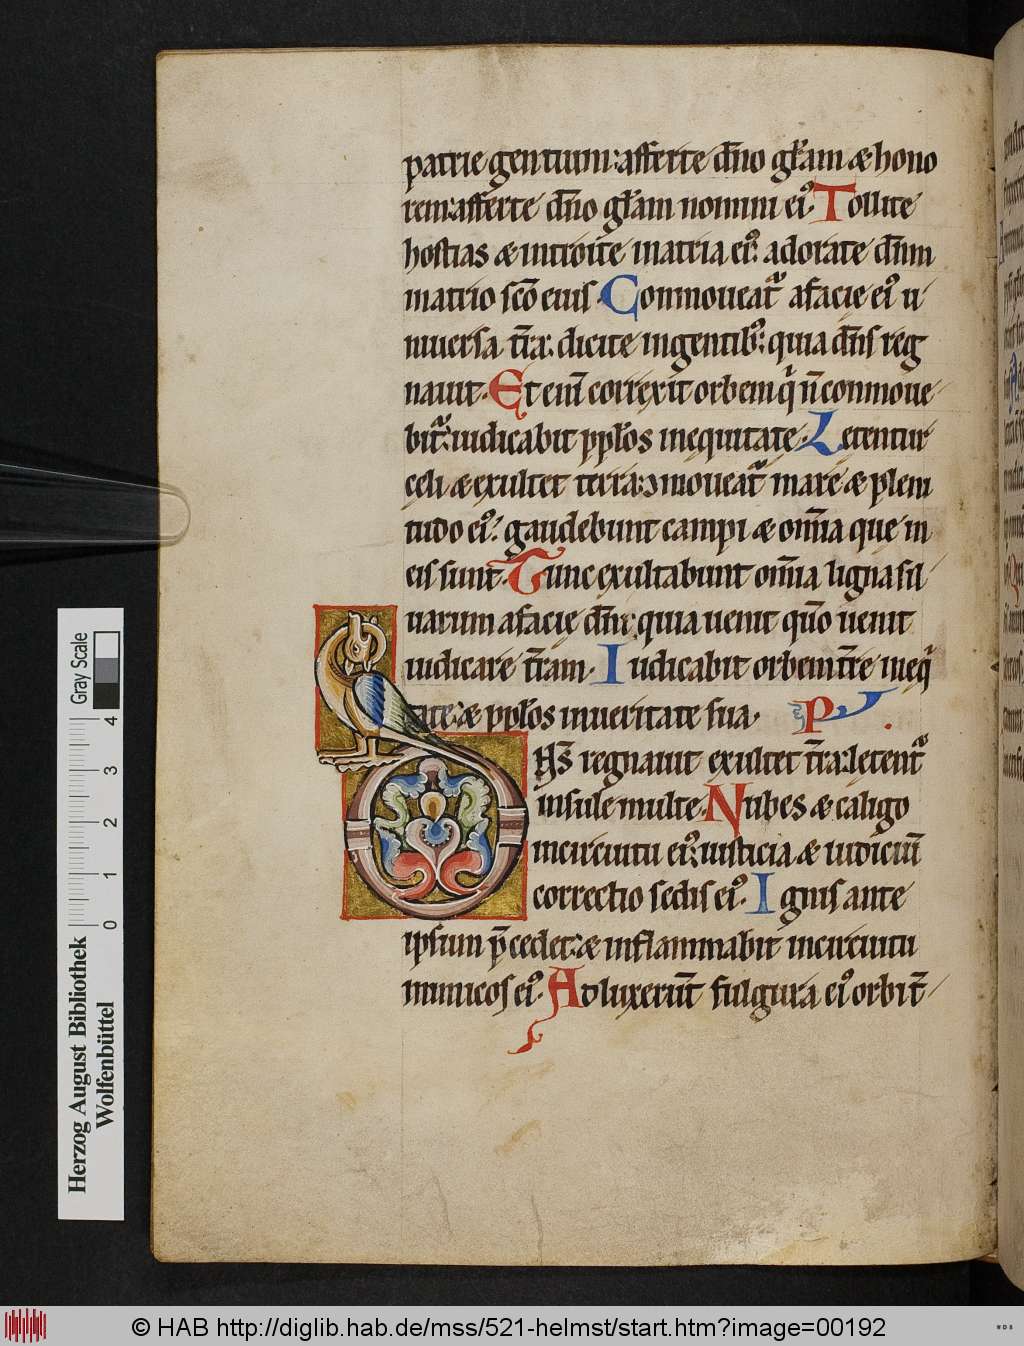 patrie gentium: afferte dn̄o gl̄am & hono
rem: afferte dn̄o gl̄am nomini ei᷒. Tollite
hostias & introite inatria ei᷒: adorate dn̄m
inatrio sc̄o eius. Commoueat᷑ afacie ei᷒ u
niuersa tr̄a: dicite ingentib᷒: quia dn̄s reg
nauit. Et eni̅ correxit orbem q̍ n̄ conmoue
bit᷑: iudicabit pp̄los inequitate. Letentur
celi & exultet terra: ↄmoueat᷑ mare & pleni
tudo ei᷒: gaudebunt campi & om̄ia que in
eis sunt. Tunc exultabunt om̄ia ligna sil
uarum afacie dn̄i: quia uenit qn̄o uenit
iudicare tr̄am. Iudicabit orbem tr̄e ineq̍
tate: & pp̄los inueritate sua. P
DN̄S regnauit exultet tr̄a: letent᷑
insule multe. Nubes & caligo
incircuitu ei᷒: iusticia & iudiciu̅
correctio sedis ei᷒. Ignis ante
ipsum p̄cedet: & inflammabit incircuitu
inimicos ei᷒. Adluxerūt fulgura ei᷒ orbi tr̄
Herzog August Bibliothek
Wolfenbüttel
Gray Scale
0 1 2 3 4
© HAB http://diglib.hab.de/mss/521-helmst/start.htm?image=00192